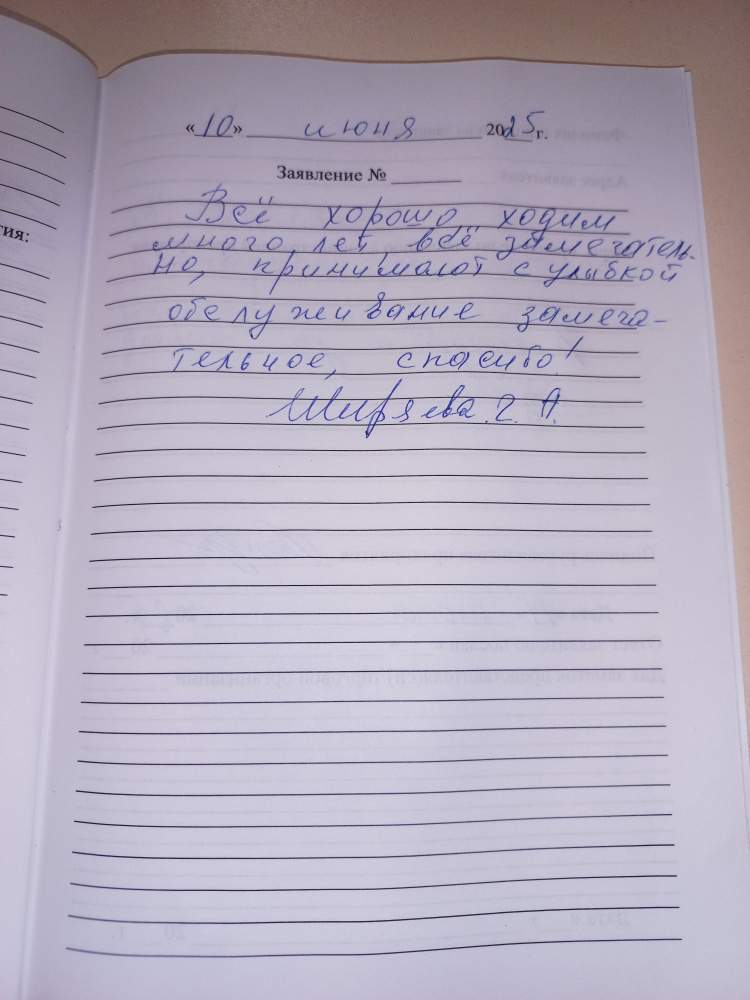 «10» июня 2025 г.
Заявление №
Всё хорошо, ходим
много лет, всё замечатель-
но, принимают с улыбкой
обслуживание замеча-
тельное, спасибо!
Ширяева. Г. А.
тия: